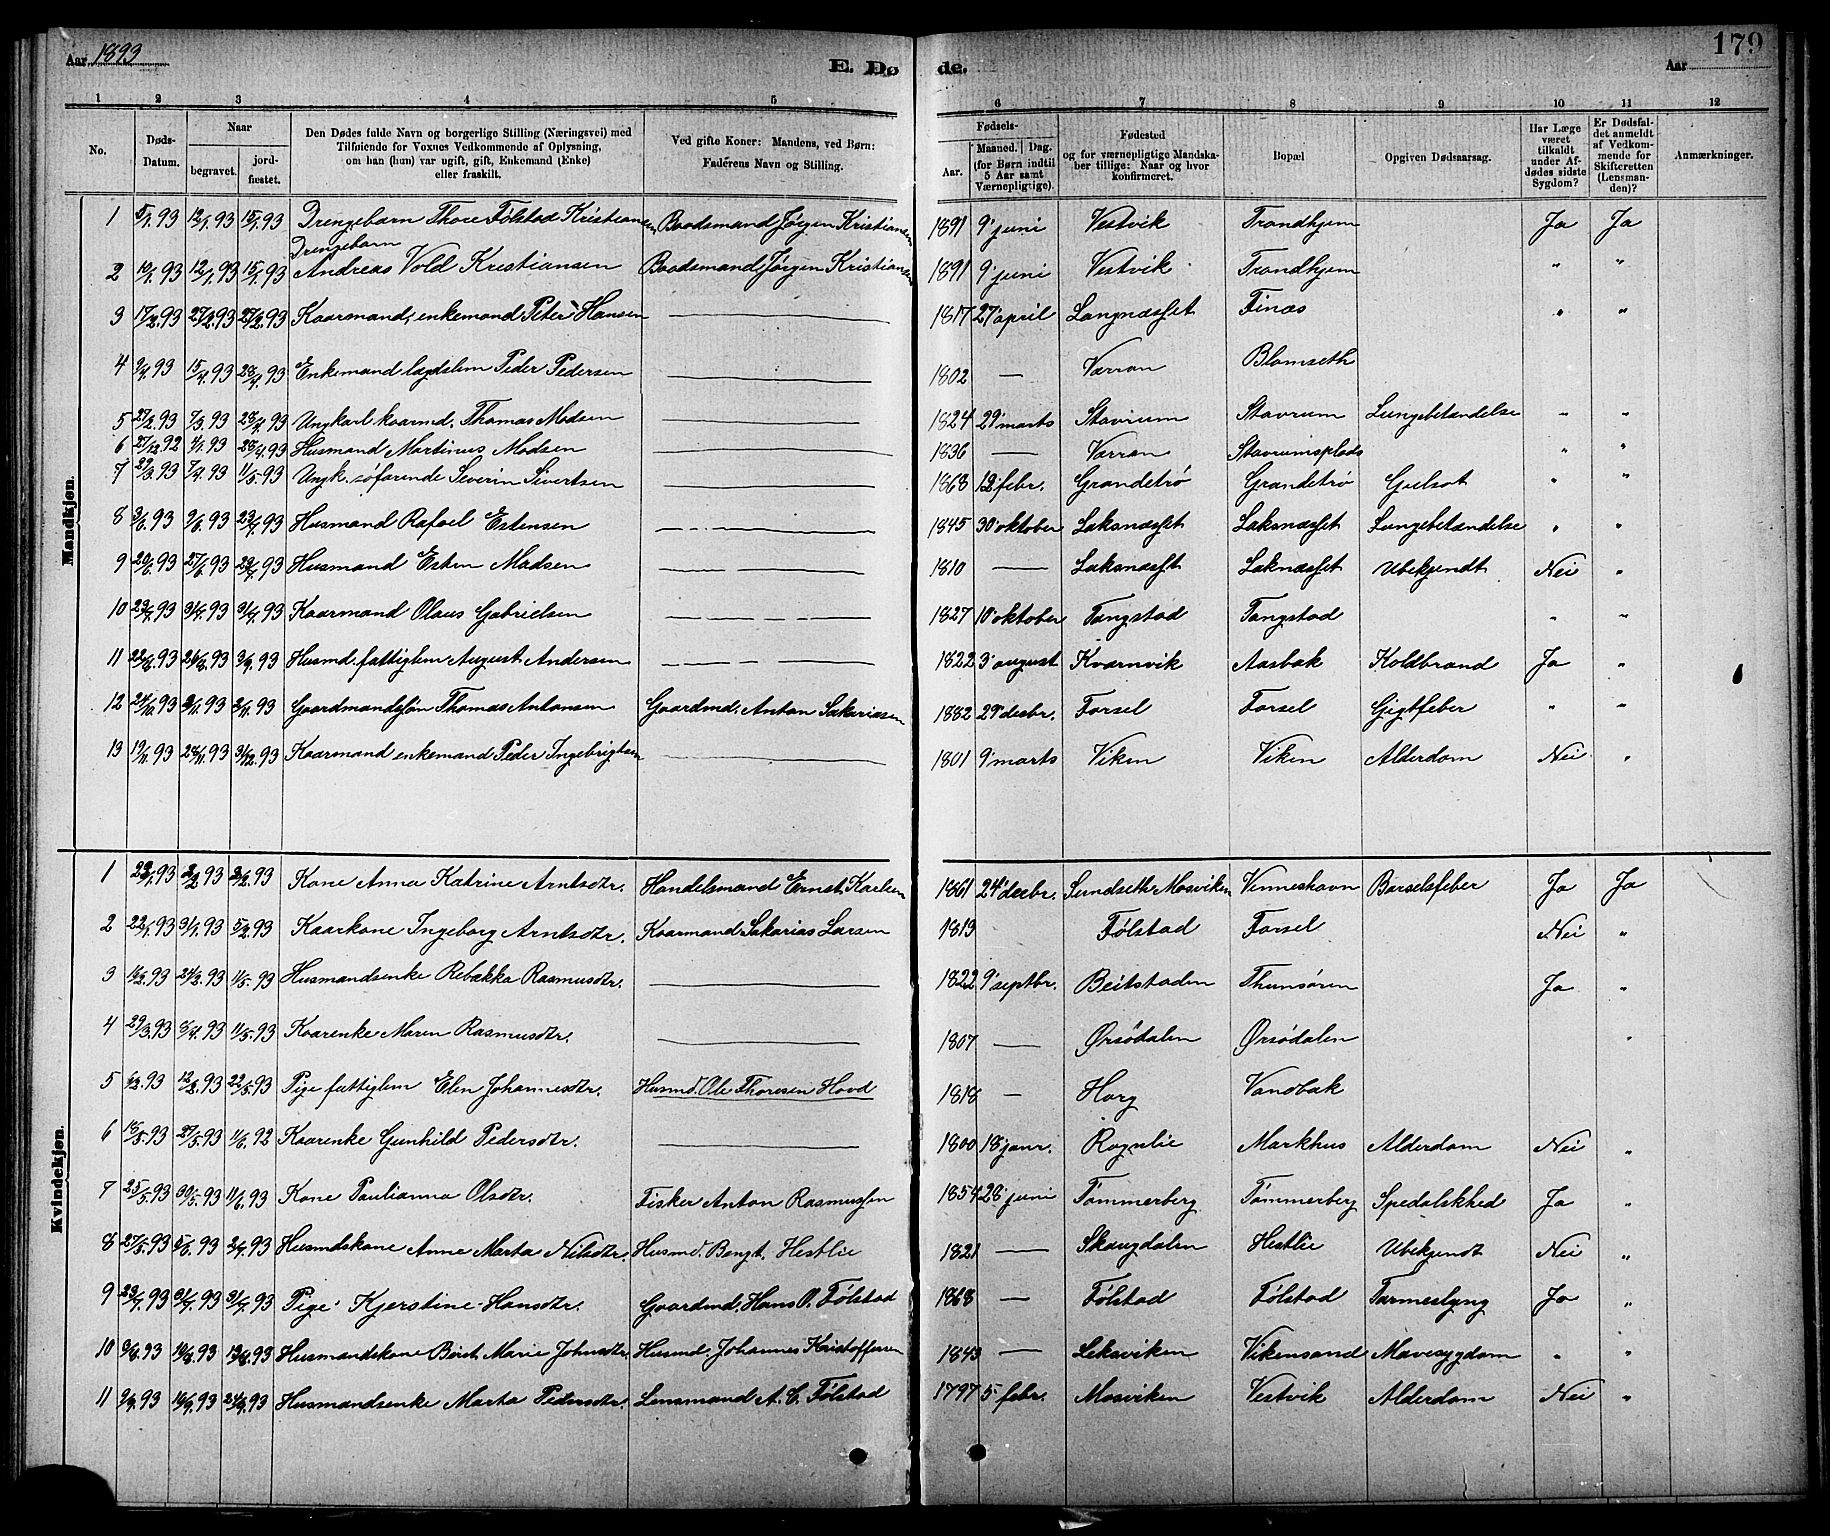 Aar 1893
E. Døde.
179
Aar
1 2 3 4 5 6 7 8 9 10 11 12
No.
Døds-Datum.
Naar
begravet.
jord-fæstet.
Den Dødes fulde Navn og borgerlige Stilling (Næringsvei) med
Tilføiende for Voxnes Vedkommende af Oplysning,
om han (hun) var ugift, gift, Enkemand (Enke)
eller fraskilt.
Ved gifte Koner: Mandens, ved Børn:
Faderens Navn og Stilling.
Fødsels-
Aar.
Maaned. Dag.
(for Børn indtil
5 Aar samt
Værnepligtige).
Fødested
og for værnepligtige Mandska-
ber tillige: Naar og hvor
konfirmeret.
Bopæl.
Opgiven Dødsaarsag.
Har Læge
været
tilkaldt
under Af-
dødes sidste
Sygdom?
Er Dødsfal-
det anmeldt
af Vedkom-
mende for
Skifteretten
(Lensman-
den)?
Anmærkninger.
Mandkjøn.
1 5/1.93 12/1.93 15/1.93 Drengebarn Thore Følstad Kristiansen Baadsmand Jørgen Kristiansen 1891 9' juni Vestvik Trondhjem Ja Ja
Drengebarn
2 10/1.93 12/1.93 15/1.93 Andreas Vold Kristiansen Baadsmand Jørgen Kristiansen 1891 9' juni Vestvik Trondhjem " "
3 17/2.93 27/2.93 27/2.93 Kaarmand, enkemand Peter Hansen — 1817 27' april Langnæsset Finæs " "
4 9/4.93 15/4.93 28/4.93 Enkemand lægdslem Peder Pedersen — 1802 — Værran Blomseth
5 27/2.93 7/3.93 28/4.93 Ungkarl kaarmd. Thomas Madsen — 1824 29' marts Stavrum Stavrum Lungebetændelse " "
6 27/12.92 7/1.93 28/4.93 Husmand Martinus Madsen — 1836 — Værran Stavrumsplads " "
7 29/3.93 7/4.93 11/5.93 Ungk. søfarende Severin Sivertsen — 1868 12' febr. Grandetrø Grandetrø Gulsot " "
8 3/6.93 9/6.93 23/7.93 Husmand Rafael Estensen — 1845 30' oktober Laksnæsset Laksnæsset Lungebetændelse " "
9 20/6.93 27/6.93 23/7.93 Husmand Esten Madsen — 1810 — Laksnæsset Laknæsset Ubekjendt Nei "
10 23/7.93 31/7.93 31/7.93 Kaarmand Olaus Gabrielsen — 1827 10' oktober Tangstad Tangstad " "
11 22/8.93 26/8.93 3/9.93 Husmd. fattiglem August Andersen — 1822 3' august Kvarnvik Aasbak Koldbrand Ja "
12 24/10.93 2/11.93 2/11.93 Gaardmandssøn Thomas Antonsen Gaardmd. Anton Sakariasen 1882 29' desbr. Forsel Forsel Gigtfeber " "
13 19/11.93 28/11.93 31/12.93 Kaarmand enkemand Peder Ingebrigtsen — 1801 9' marts Viken Viken Alderdom Nei "
Kvindekjøn.
1 23/1.93 2/2.93 2/2.93 Kone Anna Katrine Arntsdtr. Handelsmand Ernst Karlsen 1861 24' desbr. Sundseth Mosviken Venneshavn Barselsfeber Ja Ja
2 22/1.93 31/1.93 5/2.93 Kaarkone Ingeborg Arntsdtr. Kaarmand Sakarias Larsen 1819 Følstad Forsel Nei "
3 16/2.93 24/2.93 11/5.93 Husmandsenke Rebakka Rasmusdtr. — 1822 9' septbr. Beitstaden Thunsøren Ja "
4 29/3.93 8/4.93 11/5.93 Kaarenke Maren Rasmusdtr. — 1807 — Ørsødalen Ørsødalen "
5 6/2.93 12/2.93 22/5.93 Pige fattiglem Elen Johannesdtr. Husmd. Ole Thoresen Hovd 1818 — Horg Vandbak
6 18/5.93 27/5.93 11/6.92 Kaarenke Gunhild Pedersdtr. — 1800 18' janr. Rognlie Markhus Alderdom Nei "
7 25/5.93 30/5.93 11/6.93 Kone Paulianna Olsdtr. Fisker Anton Rasmussen 1854 28' juni Tømmerberg Tømmerberg Spedalskhed Ja "
8 27/5.93 5/6.93 2/7.93 Husmdskone Anne Marta Nilsdtr. Husmd. Bengt. Hestlie 1821 — Skaugdalen Hestlie Ubekjendt Nei "
9 23/7.93 31/7.93 31/7.93 Pige Kjerstine Hansdtr. Gaardmd. Hans O. Følstad 1868 — Følstad Følstad Tarmeslyng Ja "
10 9/8.93 16/8.93 19/8.93 Husmandskone Berit Marie Johnsdtr. Husmd. Johannes Kristoffersen 1843 — Leksviken Vikensand Mavesygdom " "
11 9/9.93 16/9.93 24/9.93 Husmandsenke Marta Pedersdtr. Lensmand A. C. Følstad 1797 5' febr. Mosviken Vestvik Alderdom Nei "